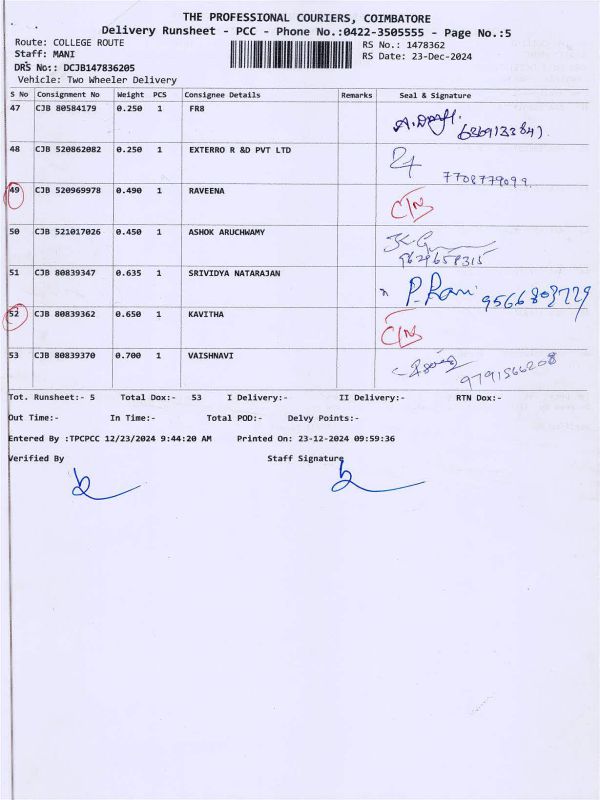 THE PROFESSIONAL COURIERS, COIMBATORE
Delivery Runsheet - PCC - Phone No.:0422-3505555 - Page No.:5
Route: COLLEGE ROUTE RS No.: 1478362
Staff: MANI RS Date: 23-Dec-2024
DRS No:: DCJB147836205
Vehicle: Two Wheeler Delivery
S No Consignment No Weight PCS Consignee Details Remarks Seal & Signature
47 CJB 80584179 0.250 1 FR8
48 CJB 520862082 0.250 1 EXTERRO R &D PVT LTD
7708779099
49 CJB 520969978 0.490 1 RAVEENA
50 CJB 521017026 0.450 1 ASHOK ARUCHWAMY
9629658315
51 CJB 80839347 0.635 1 SRIVIDYA NATARAJAN
P. Rani 9566803729
52 CJB 80839362 0.650 1 KAVITHA
53 CJB 80839370 0.700 1 VAISHNAVI
9791566208
Tot. Runsheet:- 5 Total Dox:- 53 I Delivery:- II Delivery:- RTN Dox:-
Out Time:- In Time:- Total POD:- Delvy Points:-
Entered By :TPCPCC 12/23/2024 9:44:20 AM Printed On: 23-12-2024 09:59:36
Verified By Staff Signature